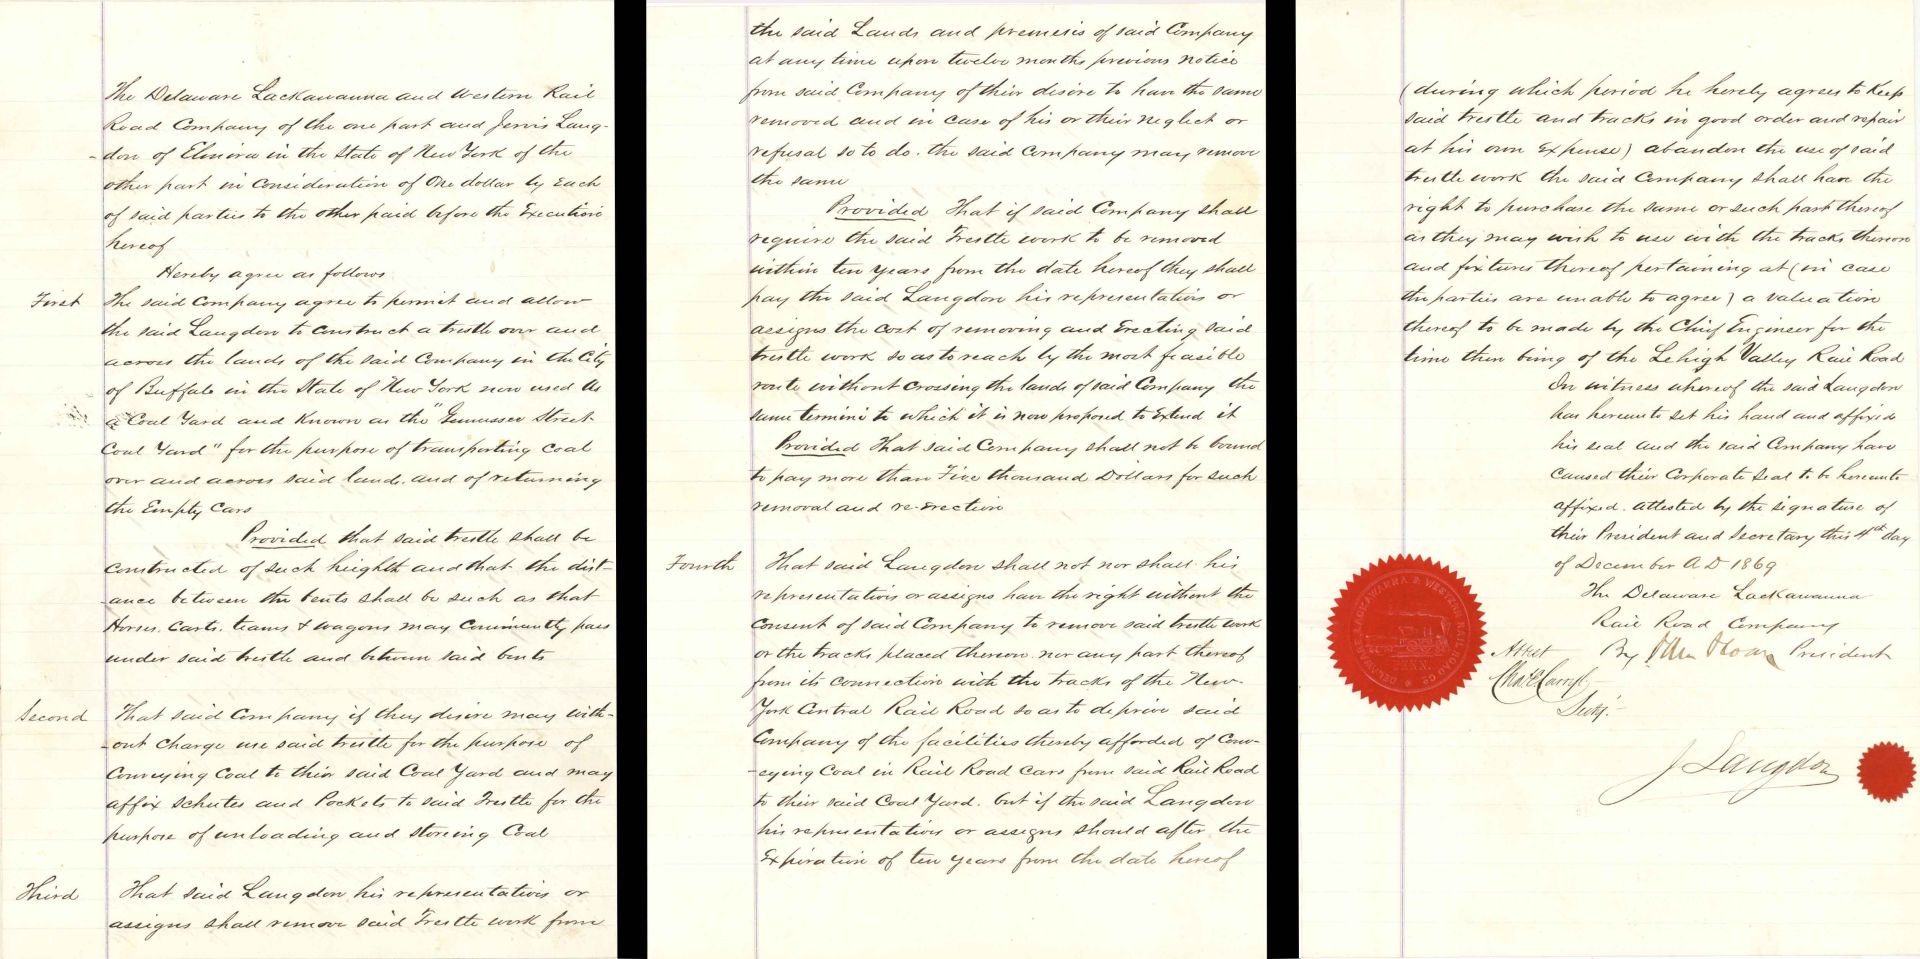 The Delaware Lackawanna and Western Rail
Road Company of the one part and Jervis Lang-
-don of Elmira in the State of New York of the
other part in consideration of One dollar by Each
of said parties to the other paid before the Execution
hereof
Hereby agree as follows
First The said Company agree to permit and allow
the said Langdon to construct a trestle over and
across the lands of the said Company in the City
of Buffalo in the State of New York now used as
a Coal Yard and Known as the "Gennessee Street
Coal Yard" for the purpose of transporting Coal
over and across said lands. and of returning
the Empty Cars
Provided that said trestle shall be
constructed of such heighth and that the dist-
-ance between the bents shall be such as that
Horses. Carts. teams & wagons may conveniently pass
under said trestle and between said bents
Second That said Company if they desire may with-
-out charge use said trestle for the purpose of
Conveying Coal to their said Coal Yard and may
affix schutes and Pockets to said Trestle for the
purpose of unloading and storeing Coal
Third That said Langdon his representatives or
assigns shall remove said Trestle work from
the said Lands and premises of said Company
at any time upon twelve months previous notice
from said Company of their desire to have the same
removed and in case of his or their neglect or
refusal so to do. the said Company may remove
the same
Provided That if said Company shall
require the said Trestle work to be removed
within ten years from the date hereof they shall
pay the said Langdon his representatives or
assigns the cost of removing and Erecting said
trestle work so as to reach by the most feasible
route without crossing the lands of said Company the
same termini to which it is now proposed to Extend it
Provided That said Company shall not be bound
to pay more than Five thousand Dollars for such
removal and re-erection
Fourth That said Langdon shall not nor shall his
representatives or assigns have the right without the
consent of said Company to remove said trestle work
or the tracks placed thereon. nor any part thereof
from its connection with the tracks of the New-
York Central Rail Road so as to deprive said
Company of the facilities thereby afforded of Conv-
-eying Coal in Rail Road cars from said Rail Road
to their said Coal Yard. but if the said Langdon
his representatives or assigns should after the
Expiration of ten years from the date hereof
(during which period he hereby agrees to Keep
said trestle and tracks in good order and repair
at his own Expense) abandon the use of said
trestle work the said Company shall have the
right to purchase the same or such part thereof
as they may wish to use with the tracks thereon
and fixtures thereof pertaining at (in case
the parties are unable to agree) a valuation
thereof to be made by the Chief Engineer for the
time then being of the Lehigh Valley Rail Road
In witness whereof the said Langdon
has hereunto set his hand and affixed
his seal and the said Company have
caused their Corporate Seal to be hereunto
affixed. attested by the signature of
their President and Secretary this 4th day
of December A D 1869
The Delaware Lackawanna
Rail Road Company
Attest By Sam Sloan President
Chas E Carryl
Secty.
DELAWARE LACKAWANNA & WESTERN RAIL ROAD CO.
PENN.
J Langdon